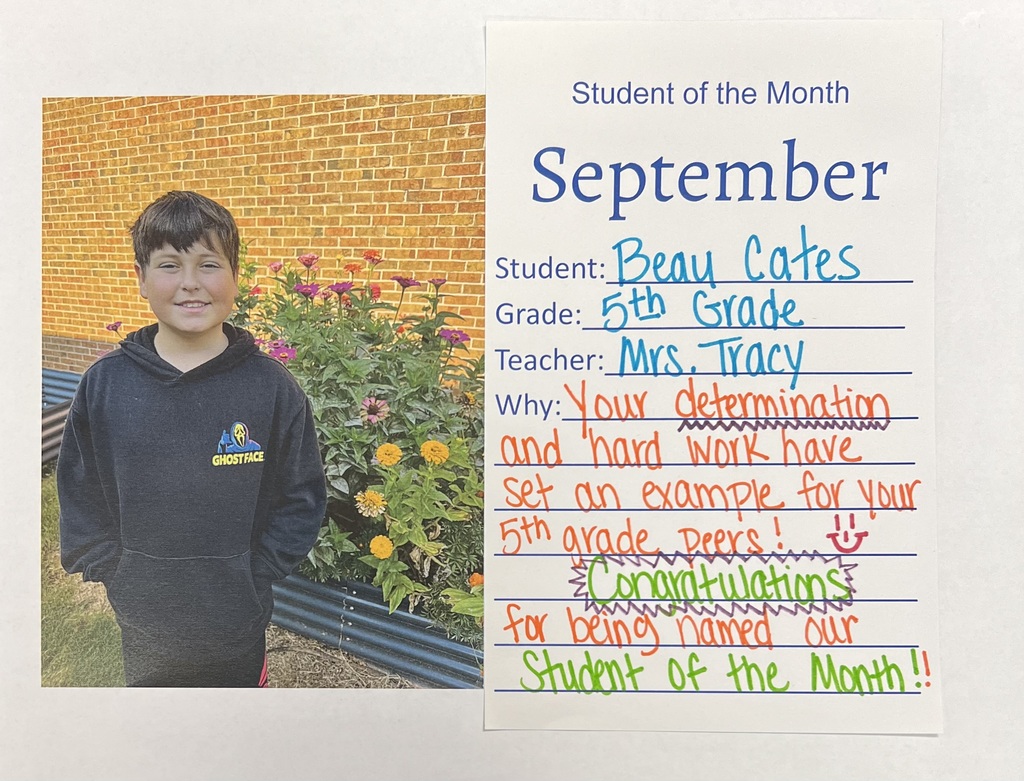 GHOSTFACE
Student of the Month
September
Student: Beau Cates
Grade: 5th Grade
Teacher: Mrs. Tracy
Why: Your determination
and hard work have
set an example for your
5th grade peers!
Congratulations
for being named our
Student of the Month!!